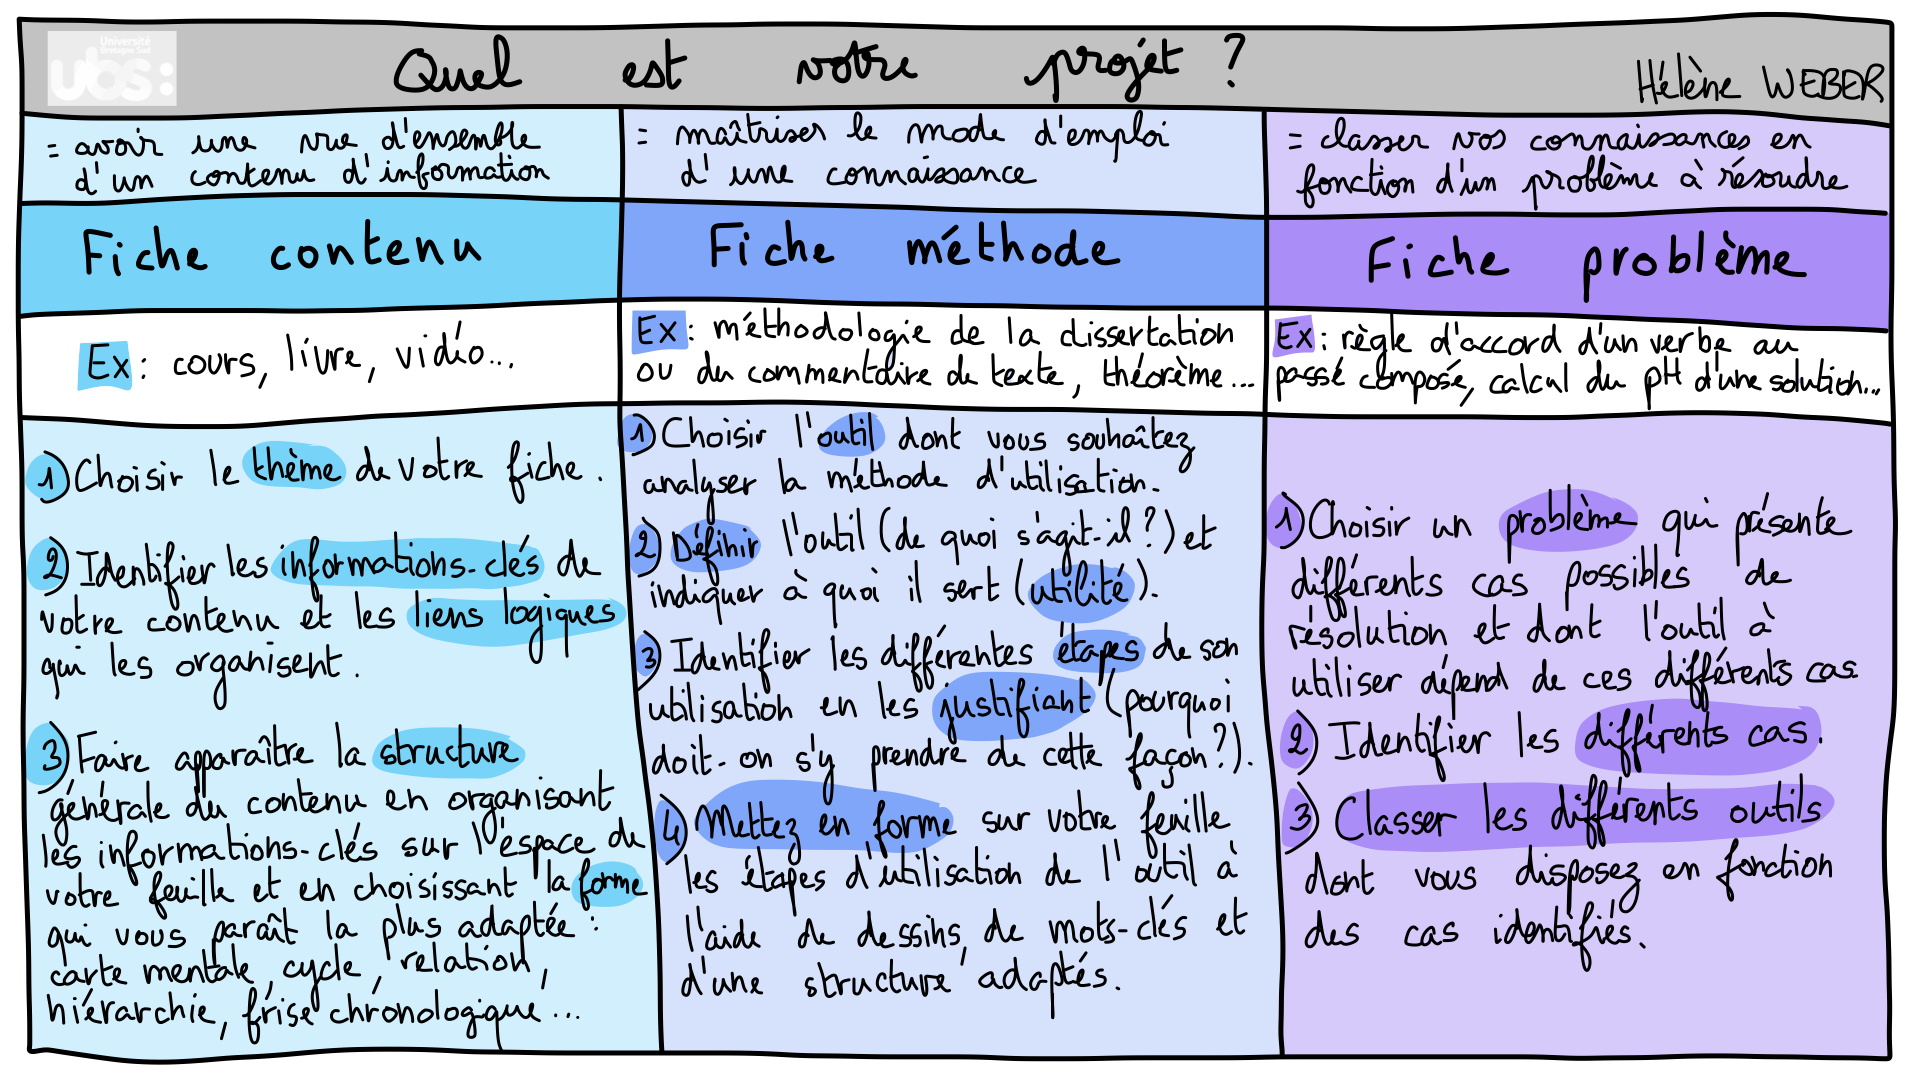 Université
Bretagne Sud
ubs:
Quel est votre projet ?
Hélène WEBER
= avoir une vue d'ensemble
d'un contenu d'information
Fiche contenu
Ex : cours, livre, vidéo...
1) Choisir le thème de votre fiche.
2) Identifier les informations-clés de
votre contenu et les liens logiques
qui les organisent.
3) Faire apparaître la structure
générale du contenu en organisant
les informations-clés sur l'espace de
votre feuille et en choisissant la forme
qui vous paraît la plus adaptée :
carte mentale, cycle, relation,
hiérarchie, frise chronologique...
= maîtriser le mode d'emploi
d'une connaissance
Fiche méthode
Ex : méthodologie de la dissertation
ou du commentaire de texte, théorème...
1) Choisir l'outil dont vous souhaîtez
analyser la méthode d'utilisation.
2) Définir l'outil (de quoi s'agit-il ?) et
indiquer à quoi il sert (utilité).
3) Identifier les différentes étapes de son
utilisation en les justifiant (pourquoi
doit-on s'y prendre de cette façon ?).
4) Mettez en forme sur votre feuille
les étapes d'utilisation de l'outil à
l'aide de dessins, de mots-clés et
d'une structure adaptés.
= classer vos connaissances en
fonction d'un problème à résoudre
Fiche problème
Ex : règle d'accord d'un verbe au
passé composé, calcul du pH d'une solution...
1) Choisir un problème qui présente
différents cas possibles de
résolution et dont l'outil à
utiliser dépend de ces différents cas
2) Identifier les différents cas.
3) Classer les différents outils
dont vous disposez en fonction
des cas identifiés.